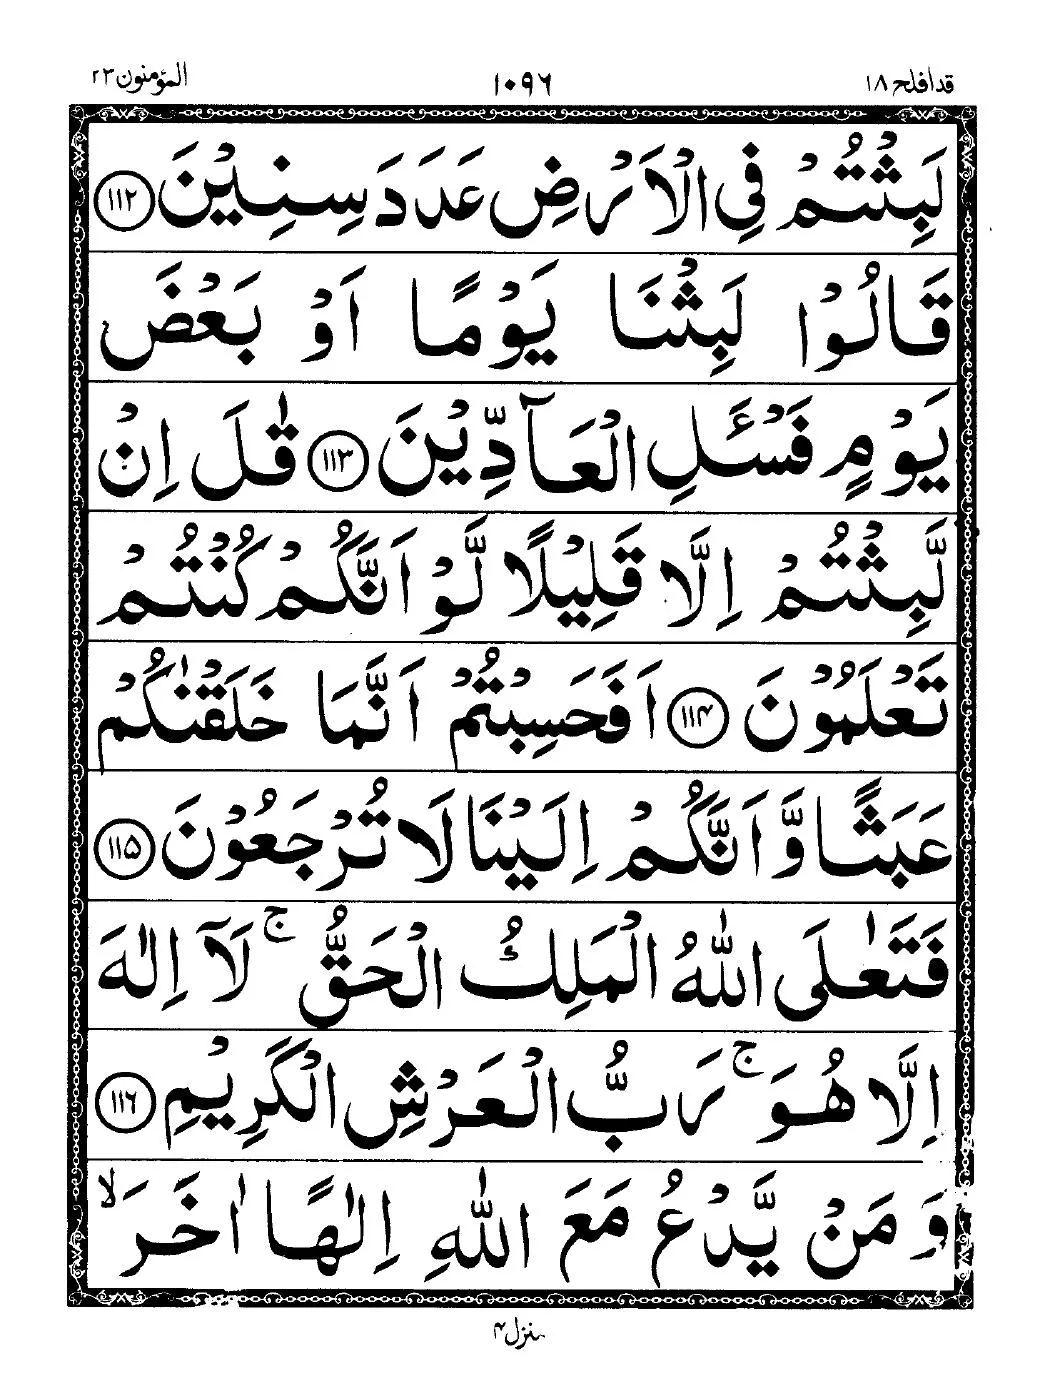 قد افلح ۱۸
۱۰۹۶
المؤمنون ۲۳
لَبِثْتُمْ فِي الْاَرْضِ عَدَدَ سِنِيْنَ ۝۱۱۲
قَالُوْا لَبِثْنَا يَوْمًا اَوْ بَعْضَ
يَوْمٍ فَسْـَٔلِ الْعَآدِّيْنَ ۝۱۱۳ قٰلَ اِنْ
لَّبِثْتُمْ اِلَّا قَلِيْلًا لَّوْ اَنَّكُمْ كُنْتُمْ
تَعْلَمُوْنَ ۝۱۱۴ اَفَحَسِبْتُمْ اَنَّمَا خَلَقْنٰكُمْ
عَبَثًا وَّ اَنَّكُمْ اِلَيْنَا لَا تُرْجَعُوْنَ ۝۱۱۵
فَتَعٰلَى اللّٰهُ الْمَلِكُ الْحَقُّ ۚ لَآ اِلٰهَ
اِلَّا هُوَ ۚ رَبُّ الْعَرْشِ الْكَرِيْمِ ۝۱۱۶
وَ مَنْ يَّدْعُ مَعَ اللّٰهِ اِلٰهًا اٰخَرَ ۙ
منزل ۴